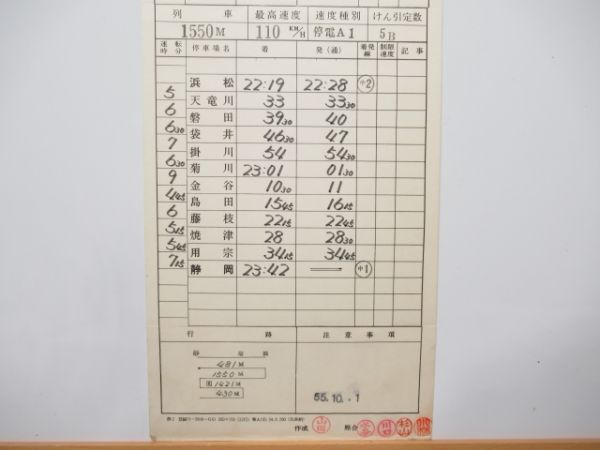 列 車 最高速度 速度種別 けん引定数
1550M 110 KM/H 停電A1 5B
運転時分 停車場名 着 発(通) 着発線 制限速度 記事
浜松 22:19 22:28 中2
5
天竜川 33 33 30
6
磐田 39 30 40
6 30
袋井 46 30 47
7
掛川 54 54 30
6 30
菊川 23:01 01 30
9
金谷 10 30 11
4 45
島田 15 45 16 15
6
藤枝 22 15 22 45
5 15
焼津 28 28 30
5 45
用宗 34 15 34 45
7 15
静岡 23:42 中1
行 路 注意事項
481M
1550M
1421M
430M
55.10.-1
作成 照合